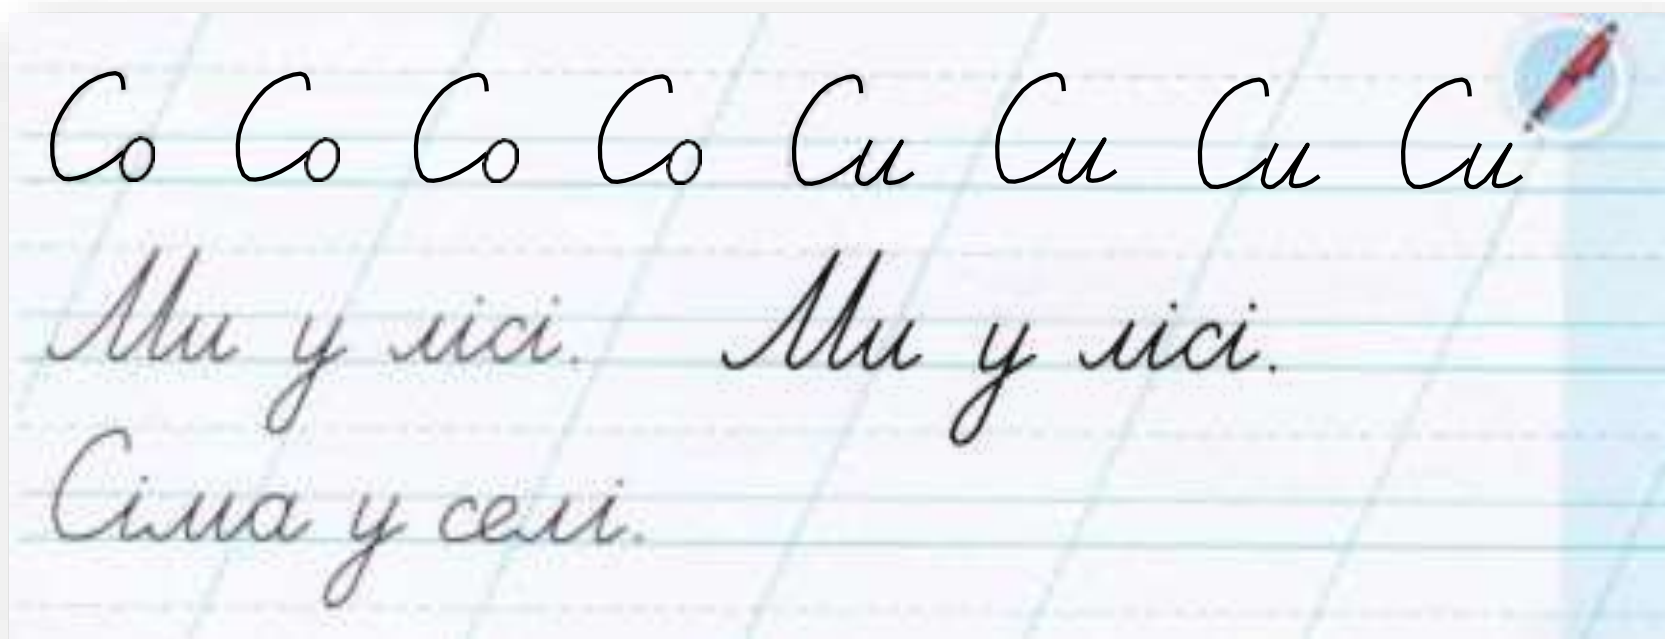 Со Со Со Со Си Си Си Си
Ми у лісі. Ми у лісі.
Сіма у селі.